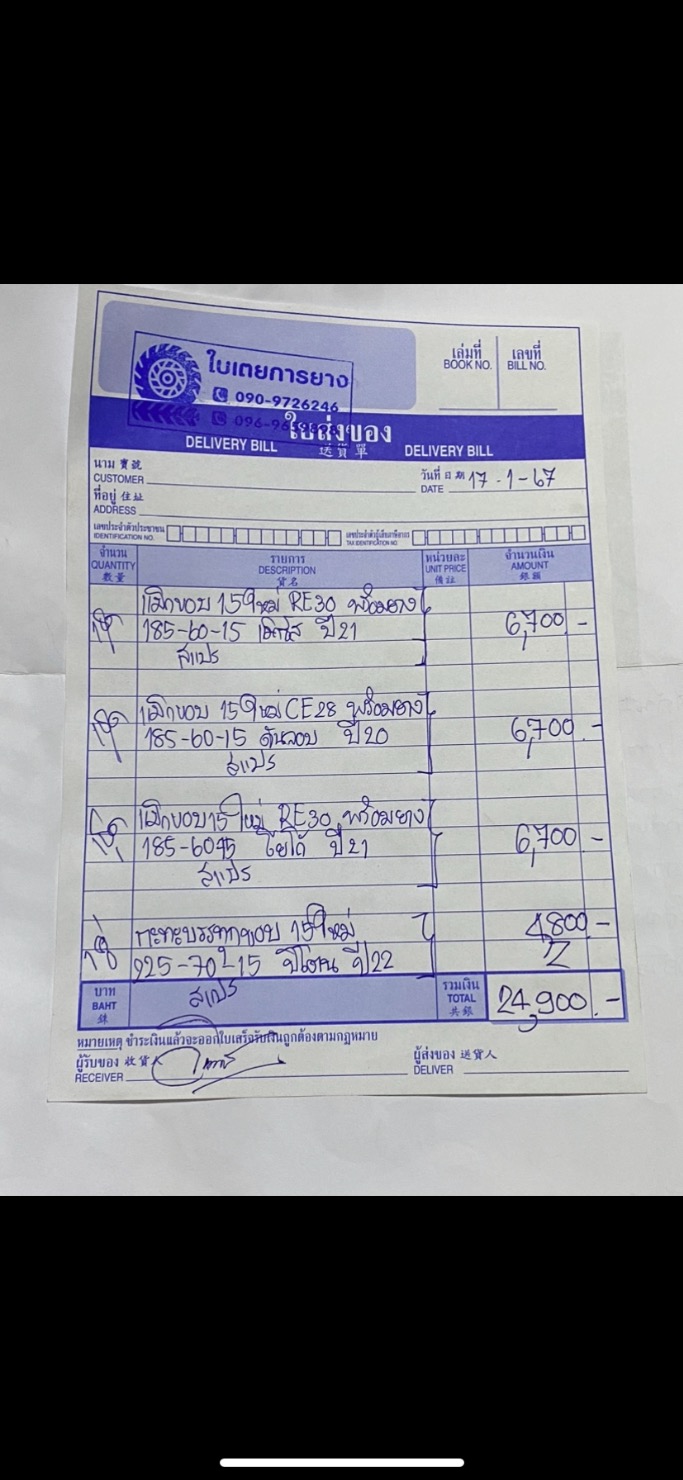 ใบเตยการยาง
090-9726246
ใบส่งของ
DELIVERY BILL 送貨單 DELIVERY BILL
เล่มที่ เลขที่
BOOK NO. BILL NO.
นาม 寶號
CUSTOMER
วันที่ 日期 17-1-67
DATE
ที่อยู่ 住址
ADDRESS
เลขประจำตัวประชาชน
IDENTIFICATION NO.
เลขประจำตัวผู้เสียภาษีอากร
TAX IDENTIFICATION NO.
จำนวน รายการ หน่วยละ จำนวนเงิน
QUANTITY DESCRIPTION UNIT PRICE AMOUNT
數量 貨名 備註 銀額
แม็กขอบ 15 ใหม่ RE30 พร้อมยาง
185-60-15 ปี 21 6,700.-
สแปร
แม็กขอบ 15 ใหม่ CE28 พร้อมยาง
185-60-15 ดันลอป ปี 20 6,700.-
สแปร
แม็กขอบ 15 ใหม่ RE30 พร้อมยาง
185-6015 โยโก้ ปี 21 6,700.-
สแปร
กะทะบรรทุกขอบ 15 ใหม่ 4,800.-
225-70-15 ปี 22
สแปร
บาท รวมเงิน
BAHT TOTAL 24,900.-
銖 共銀
หมายเหตุ ชำระเงินแล้วจะออกใบเสร็จรับเงินถูกต้องตามกฎหมาย
ผู้รับของ 收貨人 ผู้ส่งของ 送貨人
RECEIVER DELIVER